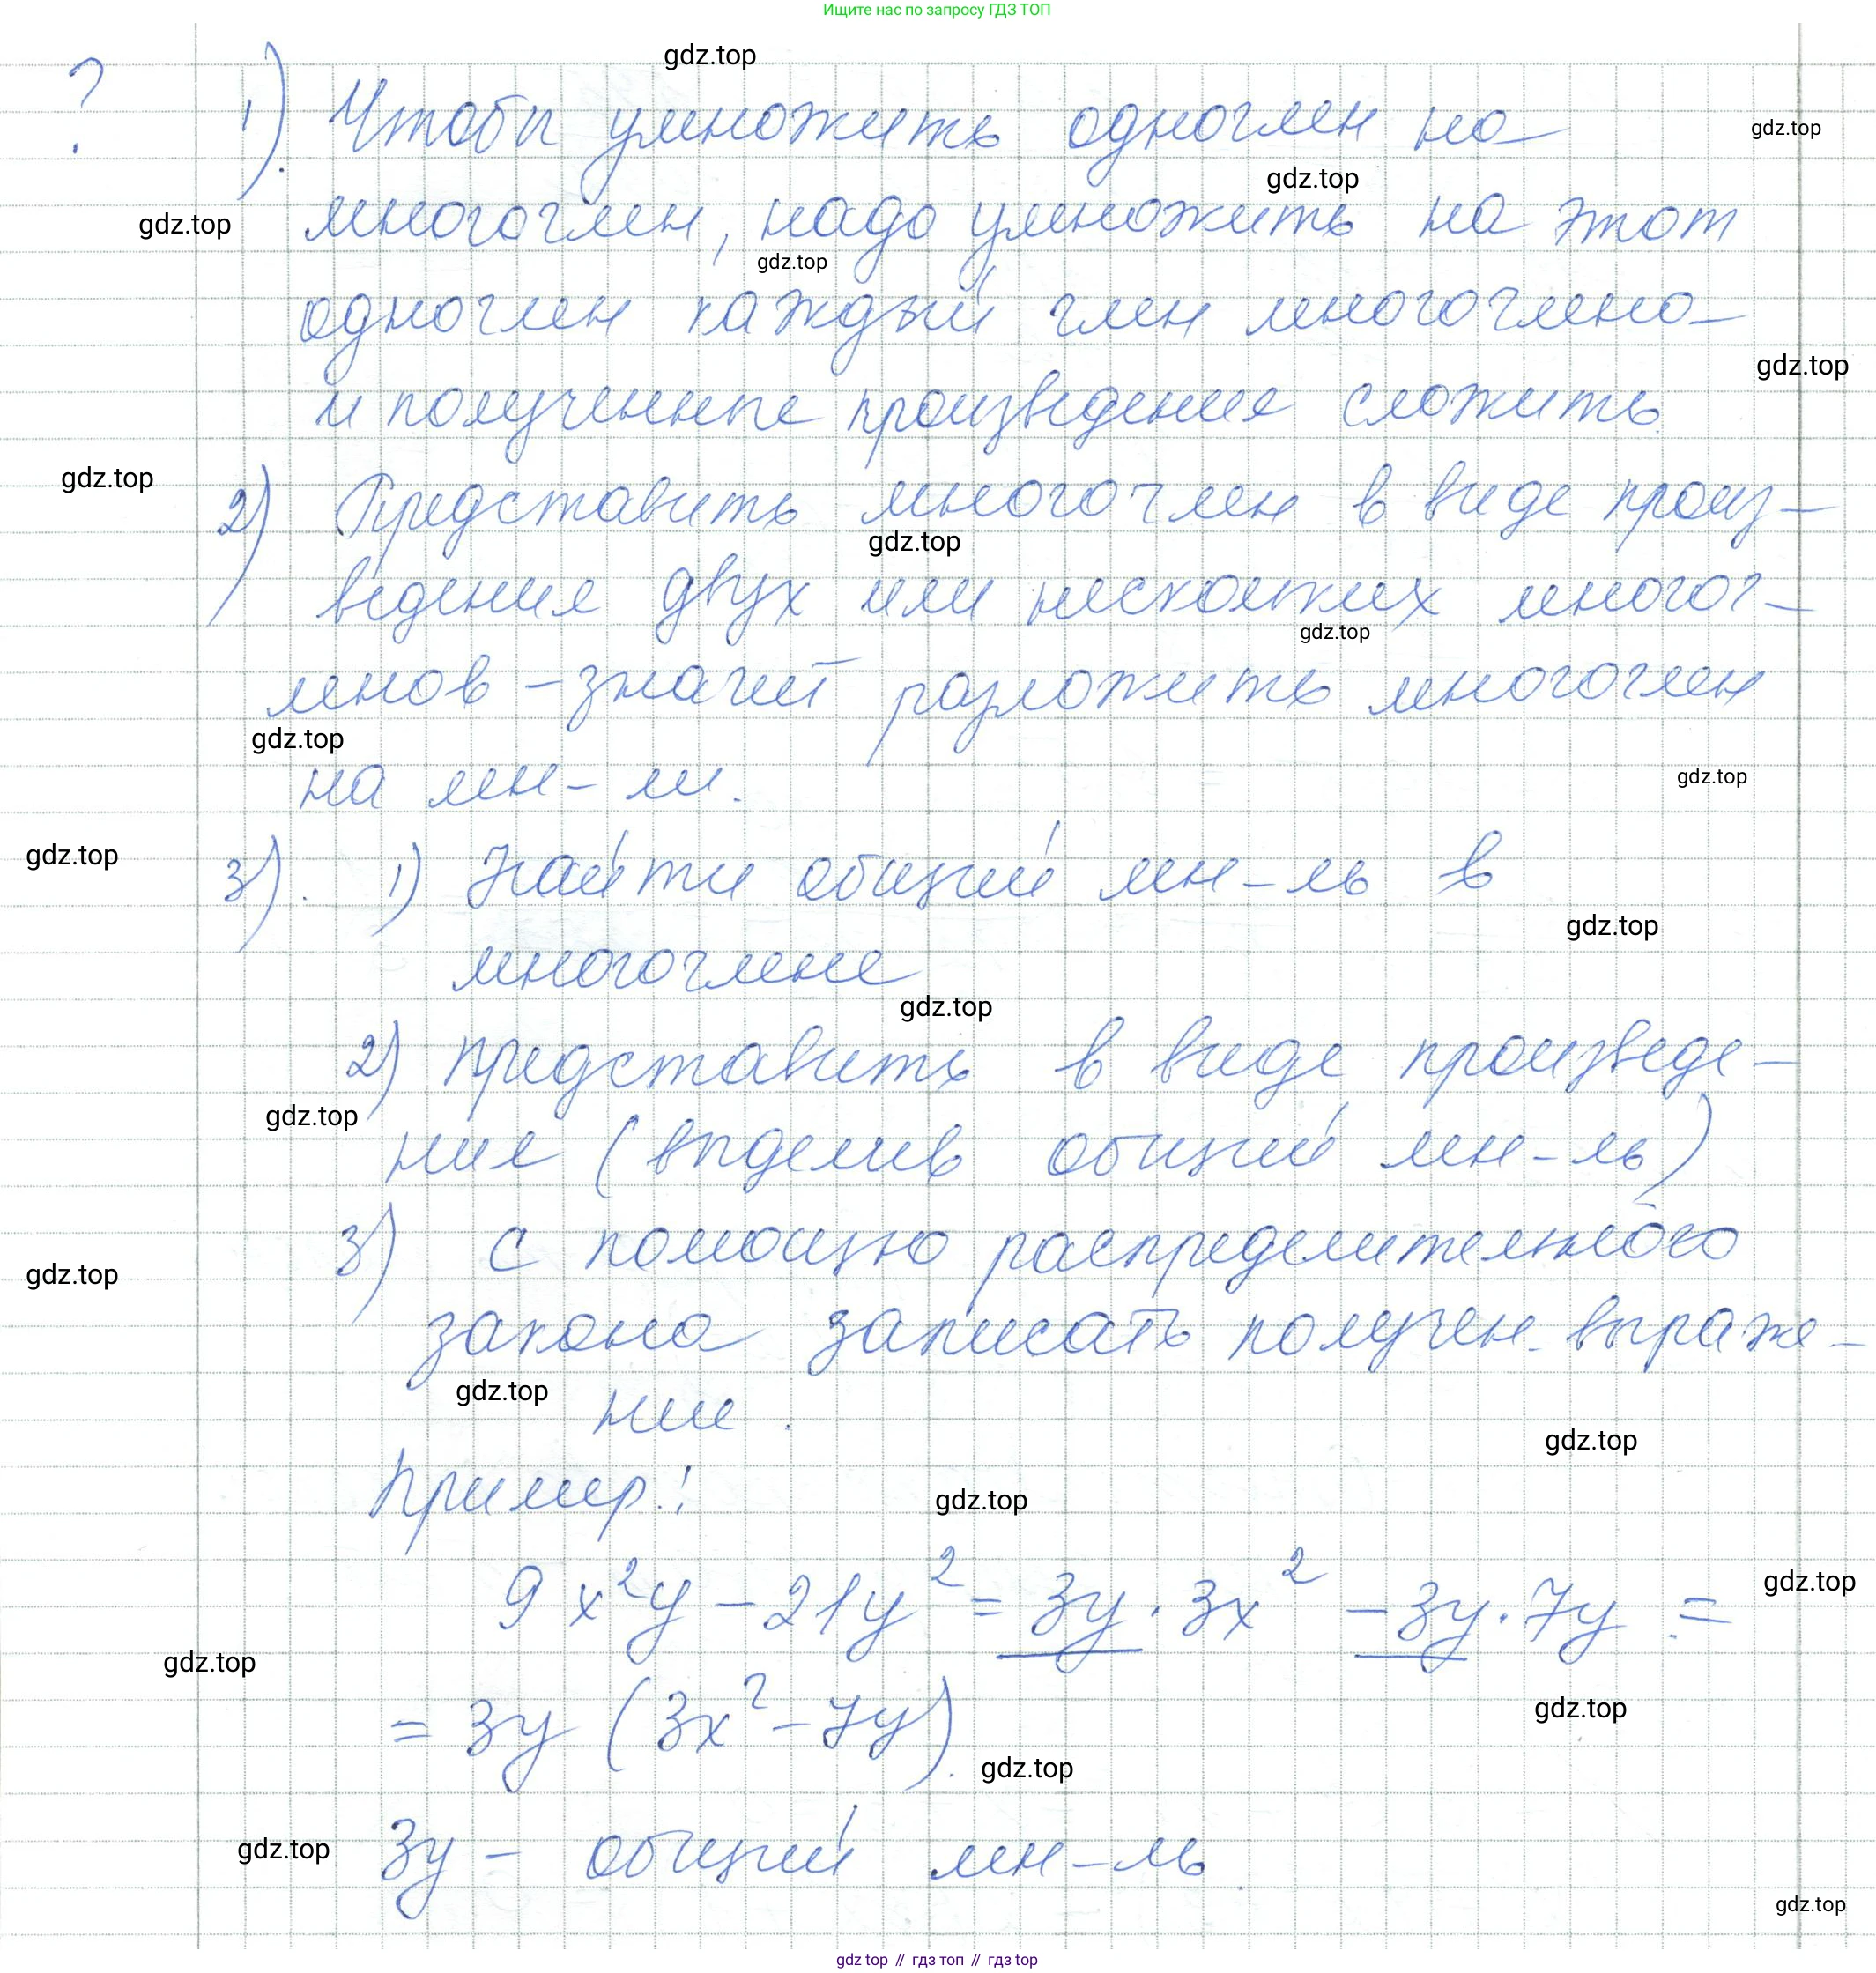 Ищите нас по запросу ГДЗ ТОП
gdz.top
? 1). Чтобы умножить одночлен на
gdz.top
gdz.top
gdz.top
многочлен, надо умножить на этот
gdz.top
одночлен каждый член многочлена
gdz.top
и полученные произведение сложить.
gdz.top
2) Представить многочлен в виде произ-
gdz.top
ведения двух или нескольких многоч-
gdz.top
ленов - значит разложить многочлен
gdz.top
на мн-ли.
gdz.top
gdz.top
3). 1) Найти общий мн-ль в
gdz.top
многочлене
gdz.top
2) представить в виде произведе-
gdz.top
ние (выделив общий мн-ль)
3) с помощью распределительного
gdz.top
закона записать получен. выраже-
gdz.top
ние.
gdz.top
Пример:
gdz.top
gdz.top
9x²y - 21y² = 3y · 3x² - 3y · 7y =
gdz.top
= 3y (3x² - 7y).
gdz.top
gdz.top
3y - общий мн-ль.
gdz.top
gdz.top
gdz top // гдз топ // гдз top